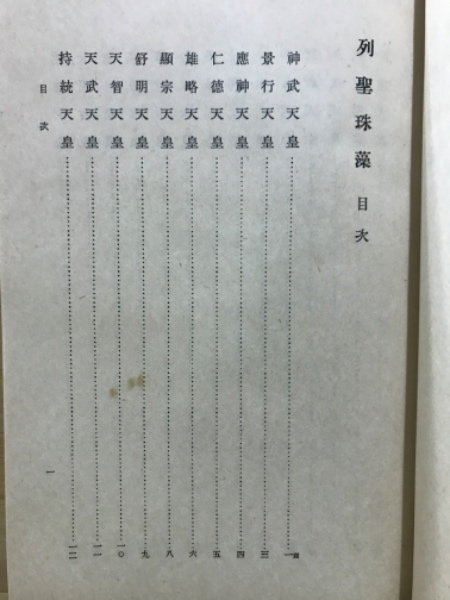 列聖珠藻 目次
神武天皇……一頁
景行天皇……三
應神天皇……四
仁德天皇……五
雄略天皇……六
顯宗天皇……八
舒明天皇……九
天智天皇……一〇
天武天皇……一一
持統天皇……一二
目次
一